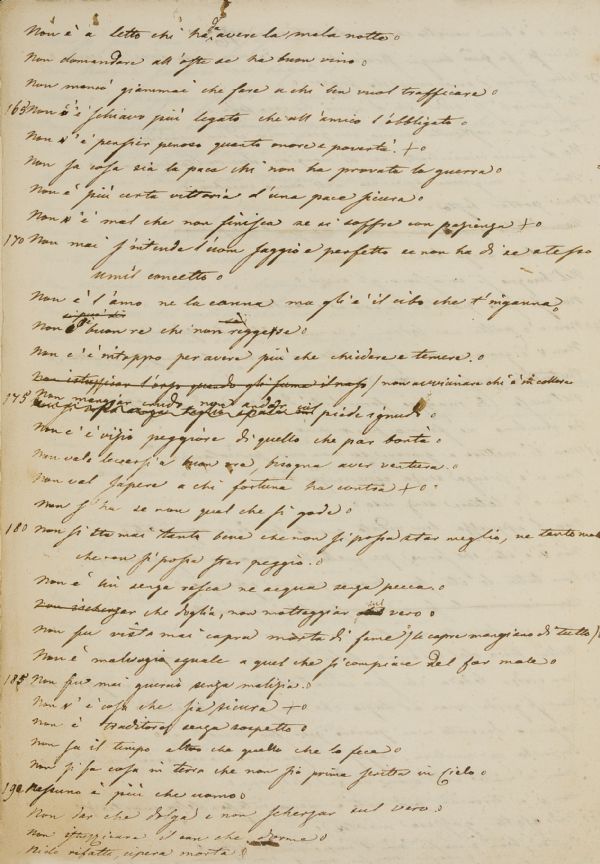 Non è a letto chi ha da avere la mala notte
Non domandare all'oste se ha buon vino
Non mancò giammai che fare a chi ben vuol trafficare
165 Non v'è schiavo più legato che all'amico l'obbligato
Non v'è pensier penoso quanto onore e povertà. +
Non sa cosa sia la pace chi non ha provata la guerra
Non è più certa vittoria d'una pace sicura
Non v'è mal che non finisca se si soffre con pazienza +
170 Non mai s'intende l'uom saggio e perfetto se non ha di se stesso
umil concetto
Non è l'amo ne la canna ma gli è il cibo che t'inganna
Non è buon re chi non regge se
Non c'è intoppo per avere più che chiedere e temere.
Non istuzzicar l'orso quando gli fuma il naso / non avvicinare chi è in collera
175 Non mangiar crudo, non andar piede ignudo
Non c'è vizio peggiore di quello che par bontà
Non vale levarsi a buon ora, bisogna aver ventura.
Non val sapere a chi fortuna ha contra +
Non s'ha se non quel che si gode
180 Non si sta mai tanto bene che non si possa star meglio, ne tanto male
che non si possa star peggio.
Non è senza ne acqua senza pecca.
Non ischerzar che doglia, non motteggiar sul vero
Non fu vista mai capra morta di fame / le capre mangiano di tutto /
Non è malvagio eguale a quel che si compiace del far male
185 Non fu mai senza malizia.
Non v'è cosa che sia sicura +
Non è traditore senza sospetto
Non fa il tempo altro che quello che lo feca
Non si fa cosa in terra che non sia prima scritta in Cielo
190 Nessuno è più che uomo
Non dar che dolga e non scherzar sul vero.
Non istuzzicare il can che dorme
Nido rifatto, morta